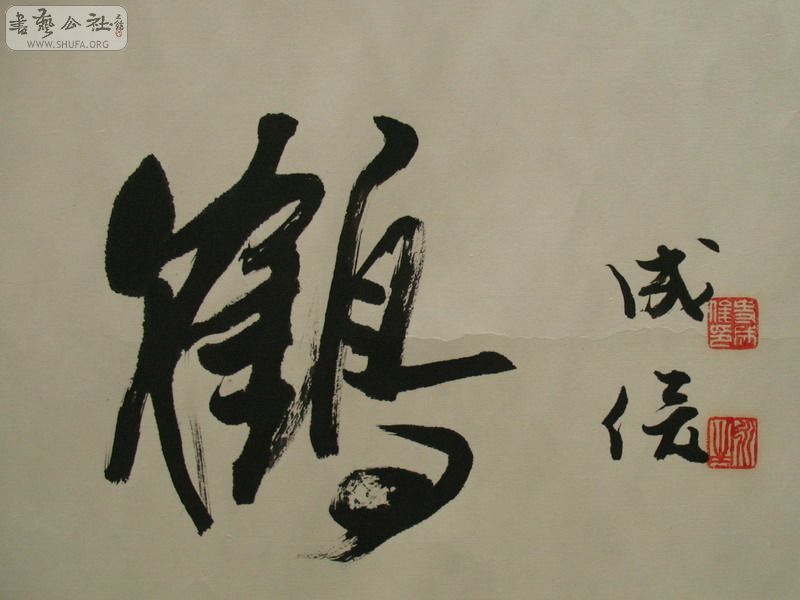 書藝公社
WWW.SHUFA.ORG
鶴
成俊